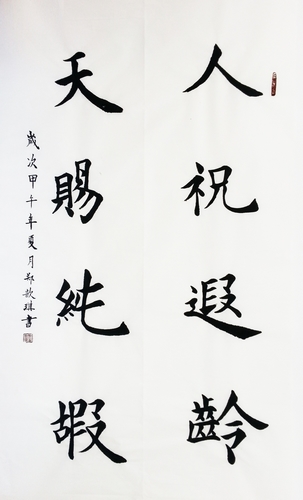 人祝遐齡
天賜純嘏
歲次甲午年夏月書